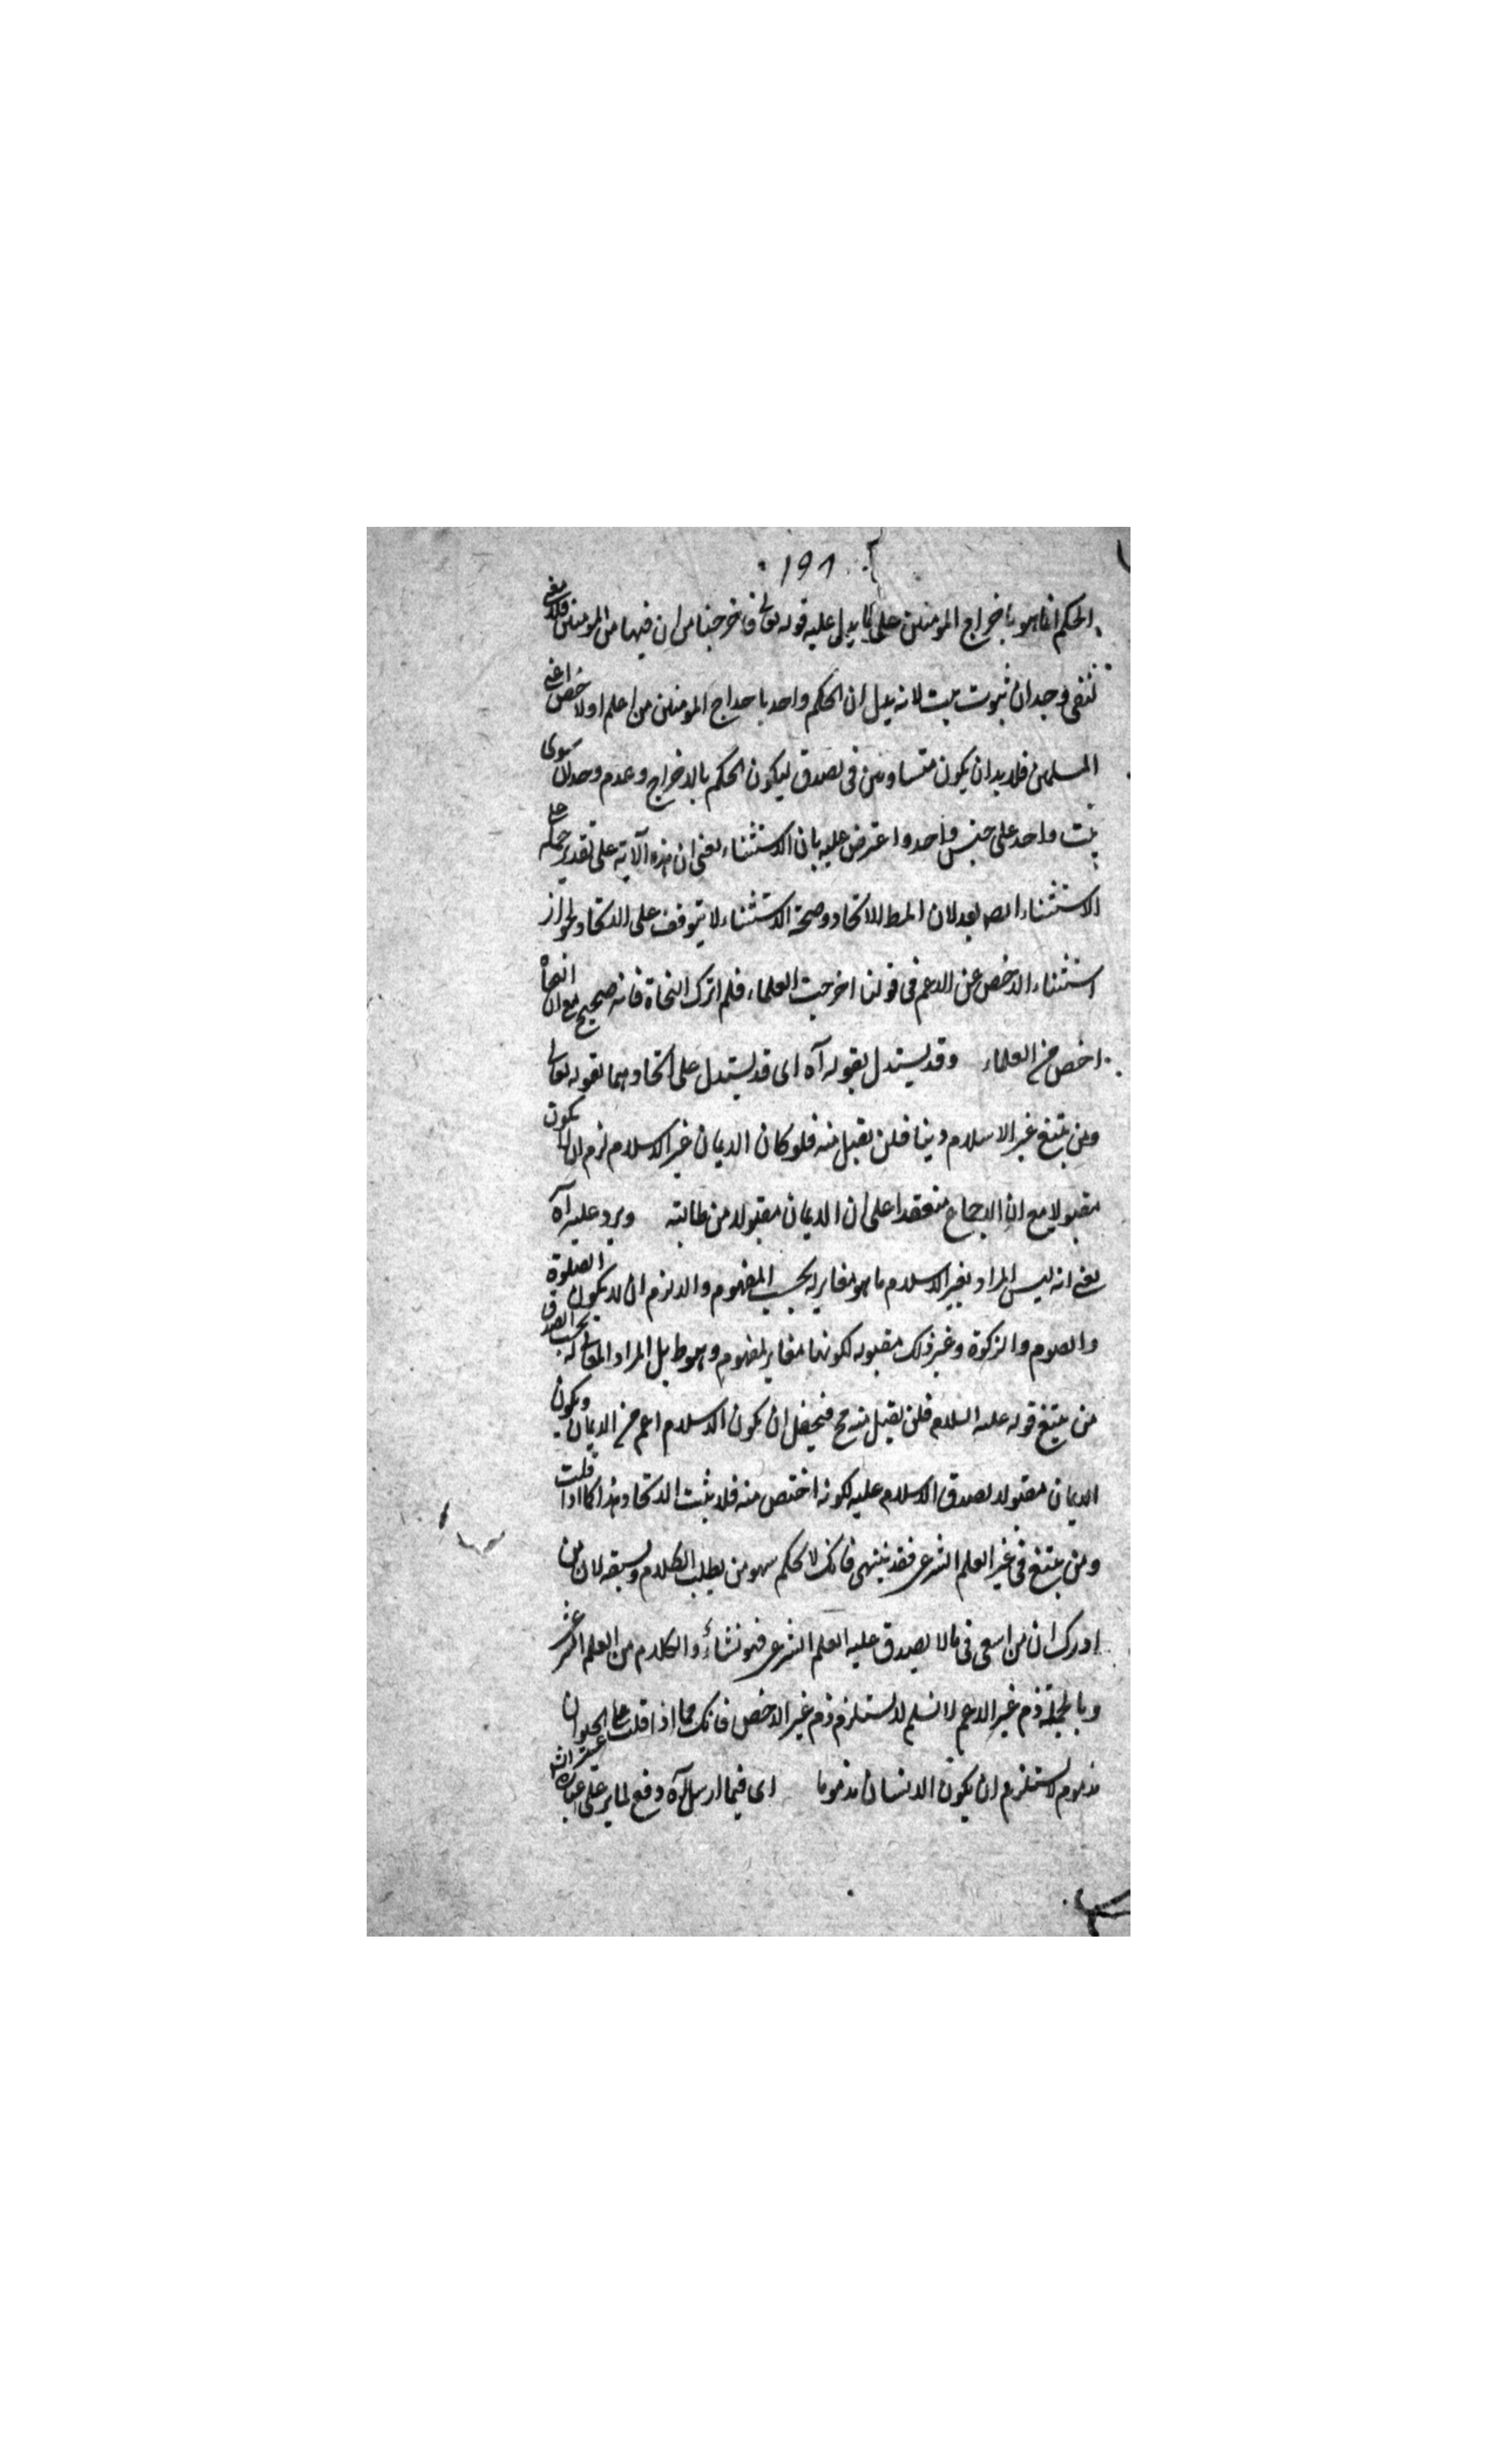 ١٩٨
الحكم انما هو باخراج المومنين على ما يدل عليه قوله تعالى فاخرجنا من كان فيها من المومنين فلا معنى
لنفى وجدان ثبوت بيت لانه يدل ان الحكم واحد باخراج المومنين من اعلم اولا خص اعنى
المسلمين فلا بد ان يكون متساويين فى تصدق ليكون الحكم بالاخراج وعدم وجدان سوى
بيت واحد على جنس واحد واعترض عليه بان الاستثناء يعنى ان هذه الآية على تقدير حمله على
الاستثناء المتصل بعد لان المط الاتحاد وصحة الاستثناء لا يتوقف على الاتحاد لجواز
استثناء الاخص عن الاعم فى قولنا اخرجت العلماء فلم اترك النحاة فانه صحيح مع ان النحاة
اخص من العلماء وقد يستدل بقوله آه اى قد يستدل على اتحادهما بقوله تعالى
ومن يبتغ غير الاسلام دينا فلن يقبل منه فلو كان الايمان غير الاسلام لزم ان لا يكون
مقبولا مع ان الاجماع منعقدا على ان الايمان مقبولا من طالبته ويرد عليه آه
يعنى انه ليس المراد بغير الاسلام ما هو مغاير له بحسب المفهوم والا لزم ان لا يكون الصلوة
والصوم والزكوة وغير ذلك مقبوله لكونها مغاير لمفهوم وهو ط بل المراد المغاير له بحسب الصدق
من يبتغ قوله عليه السلام فلن يقبل منه ح فيحتمل ان يكون الاسلام اعم من الايمان ويكون
الايمان مقبولا لصدق الاسلام عليه لكونه اختص منه فلا يثبت الاتحاد وهذا كما اذا قلت
ومن يبتغ فى غير العلم الشرعى فقد ينتهى فانك لا تحكم بهو من يطلب الكلام وسبقه لان من
ادرك ان من اسعى فى ما لا يصدق عليه العلم الشرعى فهو والكلام من العلم الشرعى
وبالجملة ذم غير الاعم لا نسلم لا يستلزم ذم غير الاخص فانك مما اذا قلت غير الحيوان
مذموم لا يستلزم ان يكون الانسان مذموما اى فيما ارسل آه دفع لما يرد على عبارة